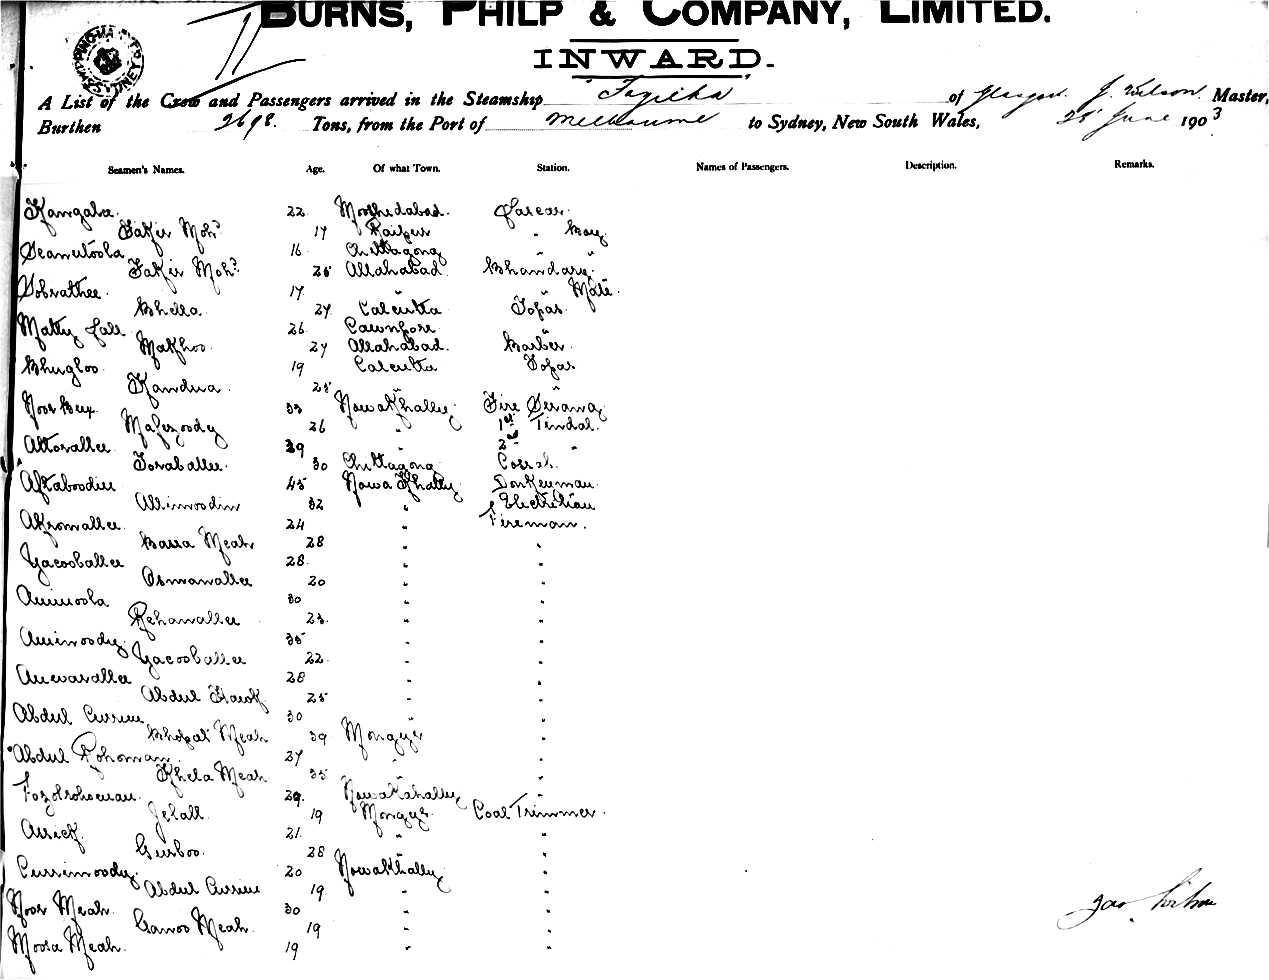 BURNS, PHILP & COMPANY, LIMITED.
INWARD.
A List of the Crew and Passengers arrived in the Steamship of Glasgow J. Wilson. Master,
Burthen 2698. Tons, from the Port of Melbourne to Sydney, New South Wales, 28 June 1903
Seamen's Names. Age. Of what Town. Station. Names of Passengers. Description. Remarks.
Kangalee. 22 Moorhedabad. Lascar.
Fakir Mohd 17 Raipur " Boy
Seametoola 16 Chittagong " "
Fakir Mohd 25 Allahabad. Bhandary.
Sobrathee 17 " " Mate.
Bhella 27 Calcutta Topas.
Matty Lall 26 Cawnpore "
Makhoo 27 Allahabad. Barber.
Bhugloo 19 Calcutta Topas
Kandua 25 " "
Noor Bux 33 Nowakhally Fire Serang
Mafizoody 26 " 1st Tindal.
Attorallee 39 " 2nd "
Toraballee. 30 Chittagong
Aftabooduu 45 Nowa Khally Donkeyman.
Allimoodin 32 " Electrician
Akromallee 24 " Fireman.
Bassa Meah 28 " "
Yacooballee 28 " "
Osmanallee 20 " "
Amimoola 30 " "
Rehanallee 23 " "
Amimoody 35 " "
Yacooballee 22 " "
Anewarallee 28 " "
Abdul Hawk 25 " "
Abdul Currim 30 " "
Bhopal Meah 39 Mongyr "
Abdul Rohoman 27 " "
Khela Meah 35 " "
29 Nowakhally "
Jelall 19 Mongyr Coal Trimmer.
Assick 21 " "
Gurboo. 28 " "
Currimoody 20 Nowakhally "
Abdul Currim 19 " "
Noor Meah. 30 " "
Ganoo Meah. 19 " "
Moosa Meah. 19 " "
Jas Wilson